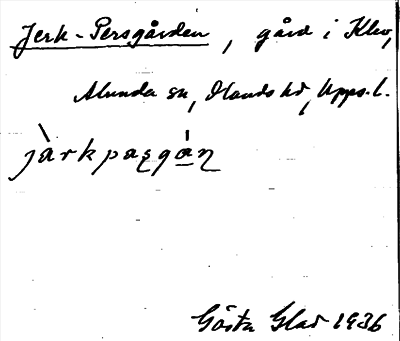 Jerk-Persgården, gård i Klev,
Alunda sn, Olands hd, Upps. l.
jàrkpasgá̱n
Gösta Glad 1936